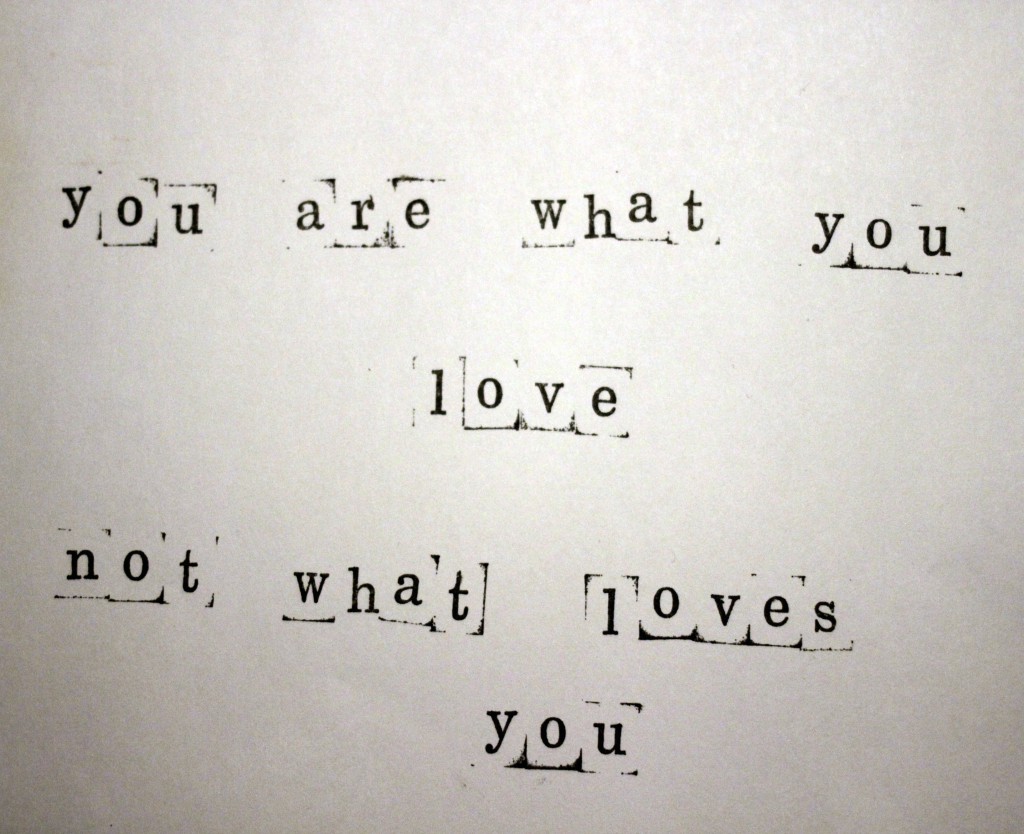 you are what you
love
not what loves
you